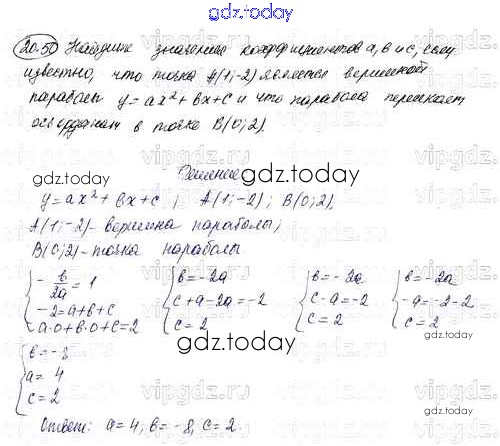 gdz.today
gdz.today
20.50 Найдите значения коэффициентов a, b и c, если
известно, что точка A(1;-2) является вершиной
параболы y = ax² + bx + c и что парабола пересекает
ось ординат в точке B(0;2).
gdz.today
Решение
y = ax² + bx + c ; A(1;-2); B(0;2),
gdz.today
A(1;-2) - вершина параболы;
B(0;2) - точка параболы.
{ -b/2a = 1
-2 = a+b+c
a·0+b·0+c=2
{ b = -2a
c+a-2a = -2
c = 2
{ b = -2a
c-a = -2
c = 2
{ b = -2a
-a = -2-2
c = 2
gdz.today
{ b = -8
a = 4
c = 2
gdz.today
Ответ: a = 4, b = -8, c = 2.
gdz.today
vipgdz.ru